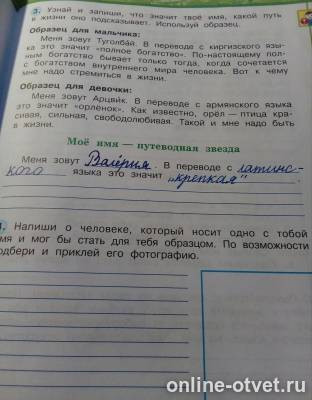 3. Узнай и запиши, что значит твоё имя, какой путь
в жизни оно подсказывает. Используй образец.
Образец для мальчика:
Меня зовут Туголба́й. В переводе с киргизского язы-
ка это значит «полное богатство». По-настоящему пол-
ным богатство бывает только тогда, когда сочетается
с богатством внутреннего мира человека. Вот к чему
мне надо стремиться в жизни.
Образец для девочки:
Меня зовут Арцви́к. В переводе с армянского языка
это значит «орлёнок». Как известно, орёл — птица кра-
сивая, сильная, свободолюбивая. Такой и мне надо быть
в жизни.
Моё имя — путеводная звезда
Меня зовут Валерия. В переводе с латинс-
кого языка это значит „крепкая"
. Напиши о человеке, который носит одно с тобой
мя и мог бы стать для тебя образцом. По возможности
одбери и приклей его фотографию.
online-otvet.ru